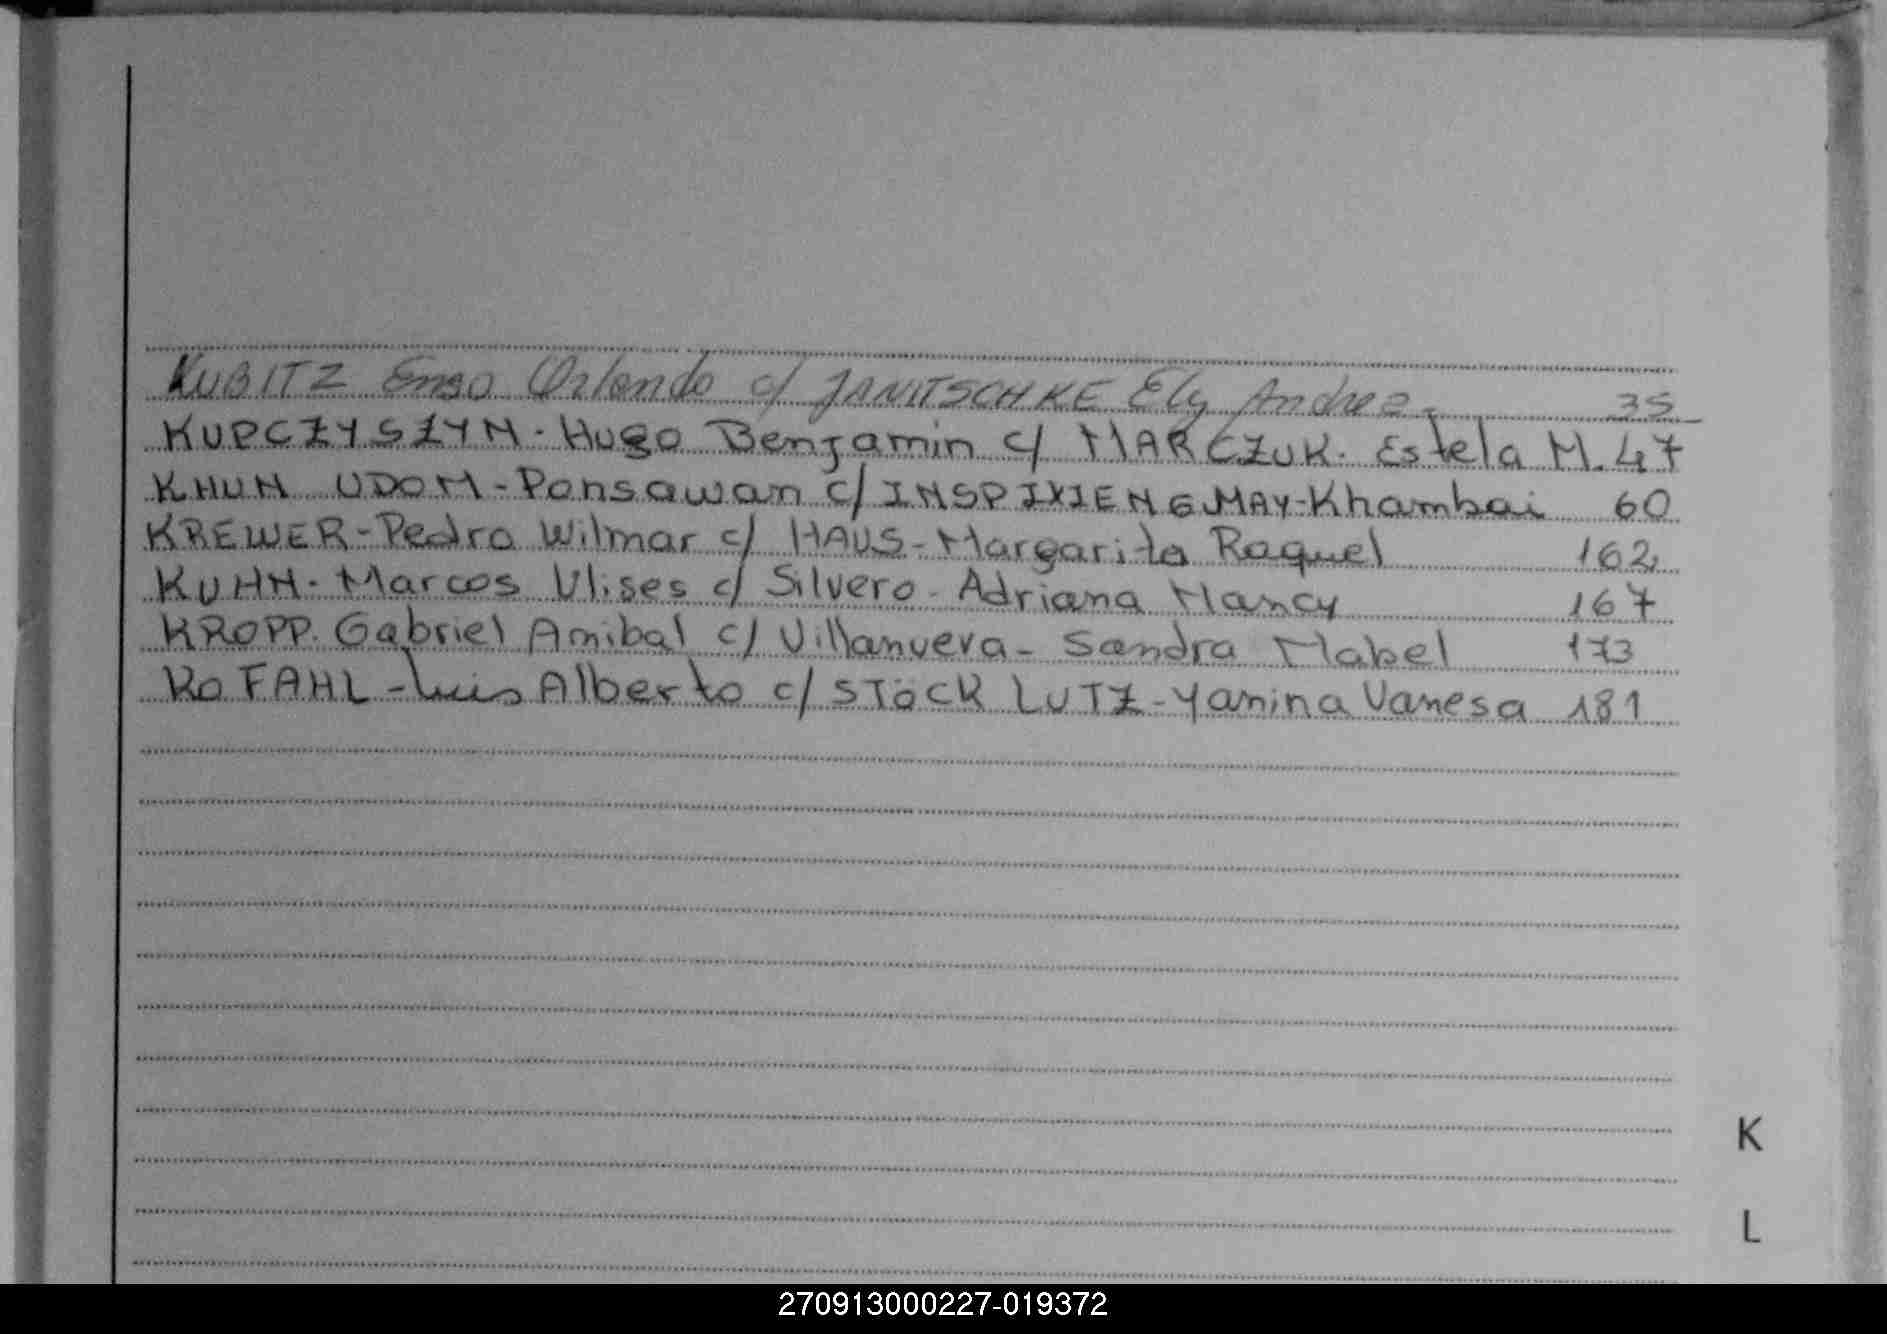 KUBITZ Enso Orlando c/ JANITSCHKE Ely Andrea - 35
KUPCZYSZYN - Hugo Benjamin c/ MARCZUK. Estela M. 47
KHUN UDOM - Ponsawan c/ INSPIXIENGMAY - Khambai 60
KREWER - Pedro Wilmar c/ HAUS - Margarita Raquel 162
KUHN - Marcos Ulises c/ Silvero - Adriana Nancy 167
KROPP. Gabriel Anibal c/ Villanueva - Sandra Mabel 173
KOFAHL - Luis Alberto c/ STÖCK LUTZ - Yanina Vanesa 181
K
L
270913000227-019372